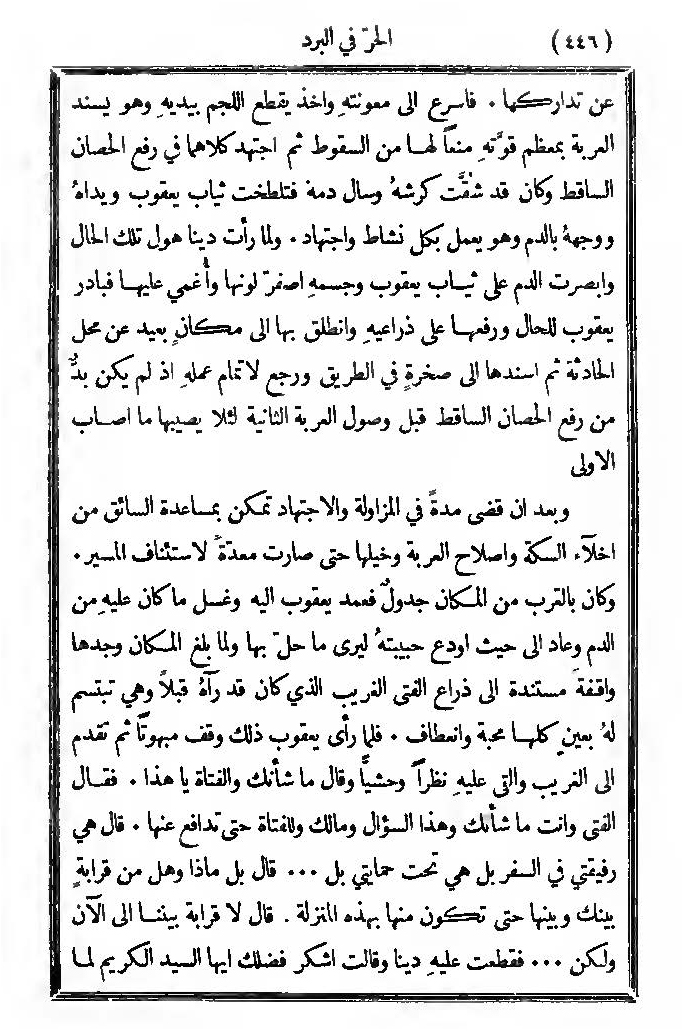 (٤٤٦) الحرّ في البرد
عن تداركها ٠ فاسرع الى معونتهِ واخذ يقطع اللجم بيديهِ وهو يسند
العربة بمعظم قوَّتهِ منعاً لها من السقوط ثم اجتهد كلاهما في رفع الحصان
الساقط وكان قد شُقَّت كرشهُ وسال دمهُ فتلطخت ثياب يعقوب ويداهُ
ووجههُ بالدم وهو يعمل بكل نشاط واجتهاد ٠ ولما رأت دينا هول تلك الحال
وابصرت الدم على ثياب يعقوب وجسمهِ اصفرّ لونها وأُغمي عليها فبادر
يعقوب للحال ورفعها على ذراعيهِ وانطلق بها الى مكانٍ بعيد عن محل
الحادثة ثم اسندها الى صخرةٍ في الطريق ورجع لاتمام عملهِ اذ لم يكن بدٌّ
من رفع الحصان الساقط قبل وصول العربة الثانية لئلا يصيبها ما اصاب
الاولى
وبعد ان قضى مدةً في المزاولة والاجتهاد تمكن بمساعدة السائق من
اخلآء السكة واصلاح العربة وخيلها حتى صارت معدّةً لاستئناف المسير ٠
وكان بالقرب من المكان جدولٌ فعمد يعقوب اليه وغسل ما كان عليهِ من
الدم وعاد الى حيث اودع حبيبتهُ ليرى ما حلّ بها ولما بلغ المكان وجدها
واقفة مستندة الى ذراع الفتى الغريب الذي كان قد رآهُ قبلاً وهي تبتسم
لهُ بعينٍ كلها محبة وانعطاف ٠ فلما رأى يعقوب ذلك وقف مبهوتاً ثم تقدم
الى الغريب والقى عليهِ نظراً وحشيًّا وقال ما شأنك والفتاة يا هذا ٠ فقال
الفتى وانت ما شأنك وهذا السؤال ومالك وللفتاة حتى تدافع عنها ٠ قال هي
رفيقتي في السفر بل هي تحت حمايتي بل ... قال بل ماذا وهل من قرابةٍ
بينك وبينها حتى تكون منها بهذه المنزلة . قال لا قرابة بيننا الى الآن
ولكن ... فقطعت عليهِ دينا وقالت اشكر فضلك ايها السيد الكريم لما